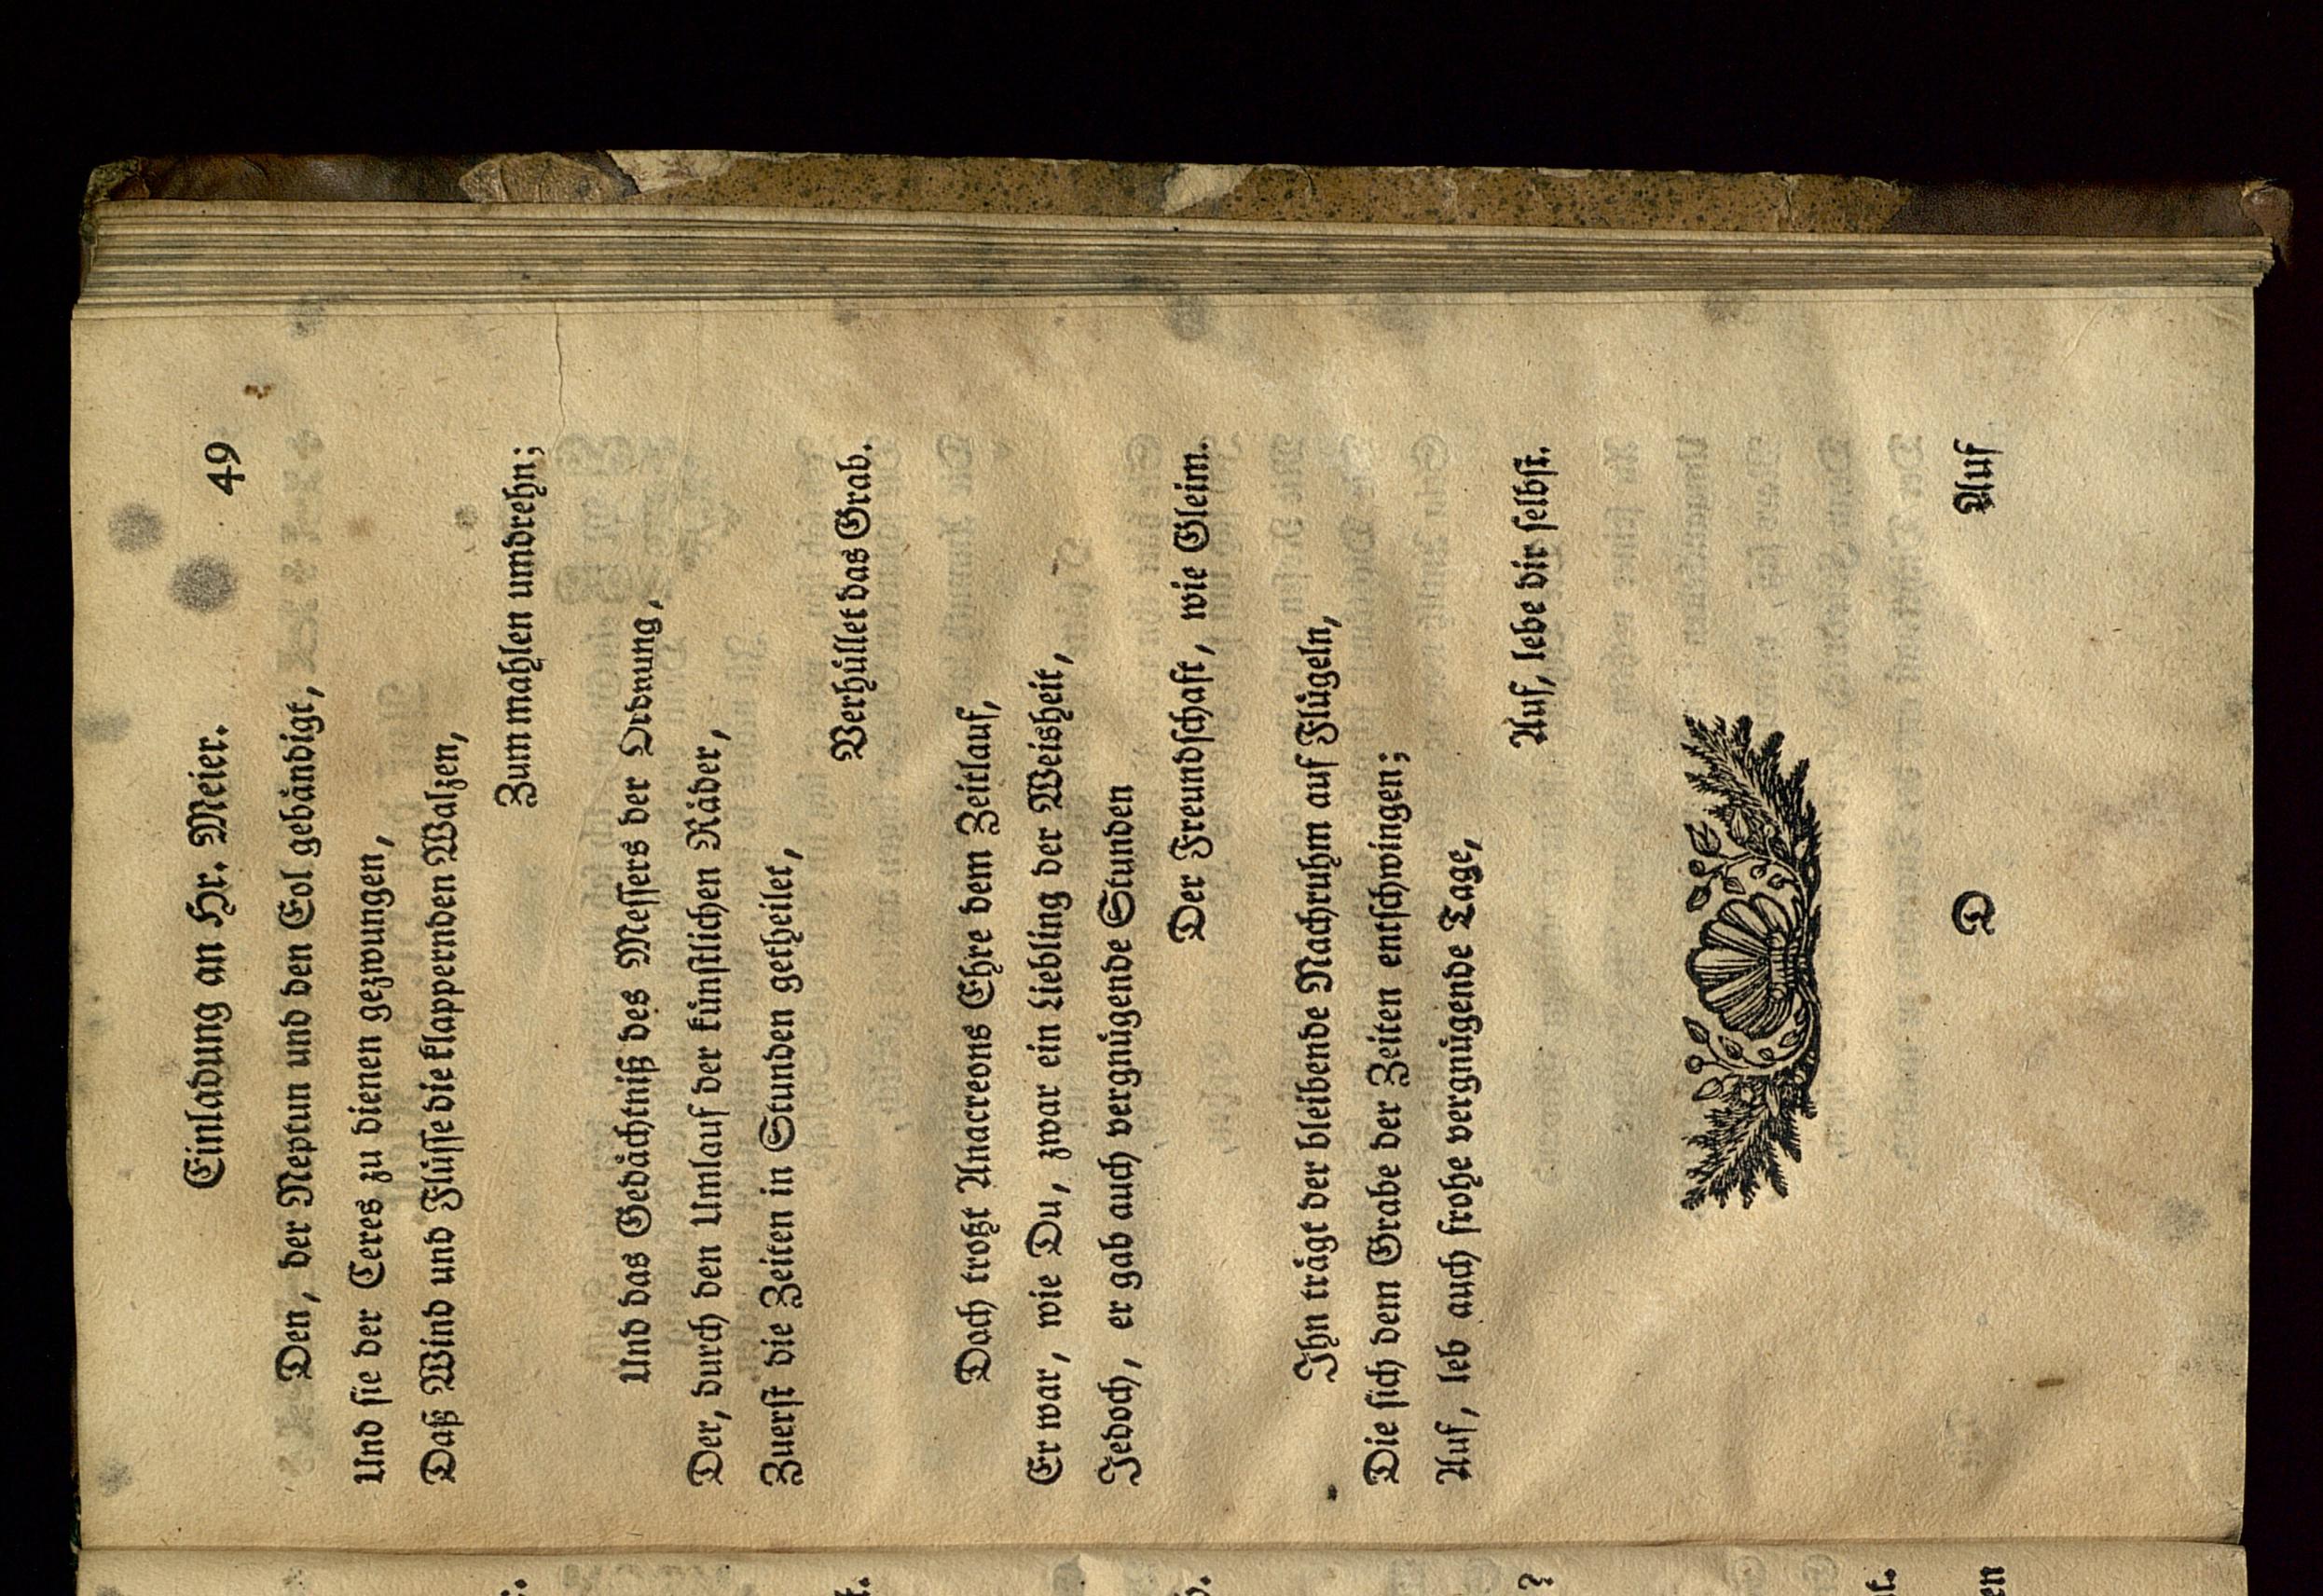 Einladung an Hr. Meier. 49
Den, der Neptun und den Eol gebändigt,
Und sie der Ceres zu dienen gezwungen,
Daß Wind und Flüsse die klappernden Walzen,
Zum mahlen umdrehn;
Und das Gedächtniß des Messers der Ordnung,
Der, durch den Umlauf der künstlichen Räder,
Zuerst die Zeiten in Stunden getheilet,
Verhüllet das Grab.
Doch trotzt Anacreons Ehre dem Zeitlauf,
Er war, wie Du, zwar ein Liebling der Weisheit,
Jedoch, er gab auch vergnügende Stunden
Der Freundschaft, wie Gleim.
Ihn trägt der bleibende Nachruhm auf Flügeln,
Die sich dem Grabe der Zeiten entschwingen;
Auf, leb auch frohe vergnügende Tage,
Auf, lebe dir selbst.
D Auf